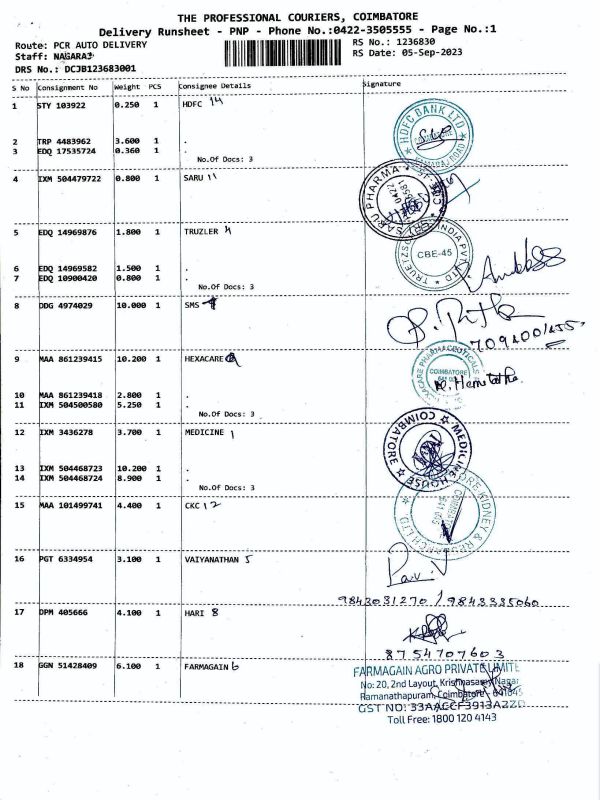 THE PROFESSIONAL COURIERS, COIMBATORE
Delivery Runsheet - PNP - Phone No.:0422-3505555 - Page No.:1
Route: PCR AUTO DELIVERY RS No.: 1236830
Staff: NAGARAJ RS Date: 05-Sep-2023
DRS No.: DCJB123683001
S No Consignment No Weight PCS Consignee Details Signature
1 STY 103922 0.250 1 HDFC 14
HDFC BANK LTD
2 TRP 4483962 3.600 1 .
3 EDQ 17535724 0.360 1 .
No.Of Docs: 3
4 IXM 504479722 0.800 1 SARU 11
SARU PHARMA
5 EDQ 14969876 1.800 1 TRUZLER 4
CBE-45
6 EDQ 14969582 1.500 1 .
7 EDQ 10900420 0.800 1 .
No.Of Docs: 3
8 DDG 4974029 10.000 1 SMS
9 MAA 861239415 10.200 1 HEXACARE
COIMBATORE
10 MAA 861239418 2.800 1 .
11 IXM 504500580 5.250 1 .
No.Of Docs: 3
12 IXM 3436278 3.700 1 MEDICINE 1
MEDICINE HOUSE
COIMBATORE
13 IXM 504468723 10.200 1 .
14 IXM 504468724 8.900 1 .
No.Of Docs: 3
15 MAA 101499741 4.400 1 CKC 12
KIDNEY &
16 PGT 6334954 3.100 1 VAIYANATHAN 5
9843031270 / 9843335060
17 DPM 405666 4.100 1 HARI 8
8754707603
18 GGN 51428409 6.100 1 FARMAGAIN 6
FARMAGAIN AGRO PRIVATE LIMITE
No: 20, 2nd Layout, Krishnasamy Nagar
Ramanathapuram, Coimbatore - 641045
GST NO: 33AACCF3913A2ZD
Toll Free: 1800 120 4143